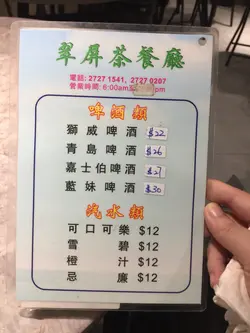 翠屏茶餐廳
電話: 2727 1541, 2727 0207
營業時間: 6:00am
啤酒類
獅威啤酒 $22
青島啤酒 $26
嘉士伯啤酒 $27
藍妹啤酒 $30
汽水類
可口可樂 $12
雪碧 $12
橙汁 $12
忌廉 $12